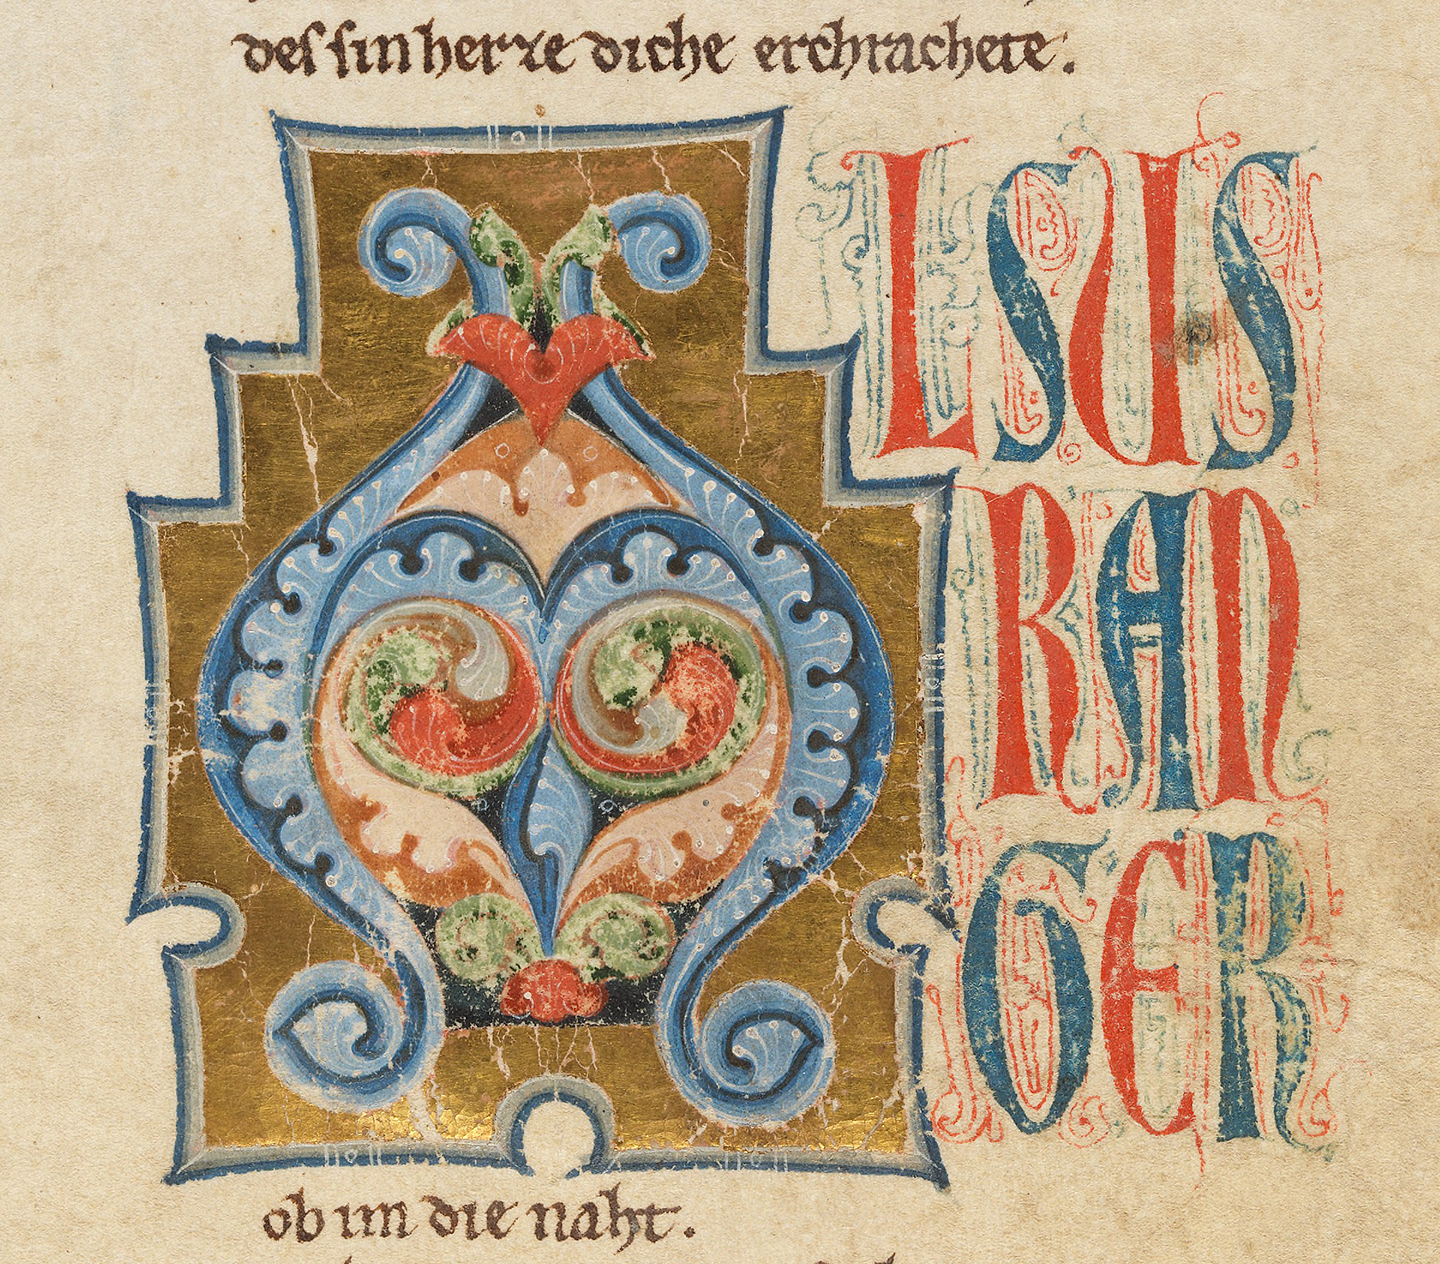 deſ ſin herze diche erchrachete.
ALSUS
RAN
GER
ob im die naht.